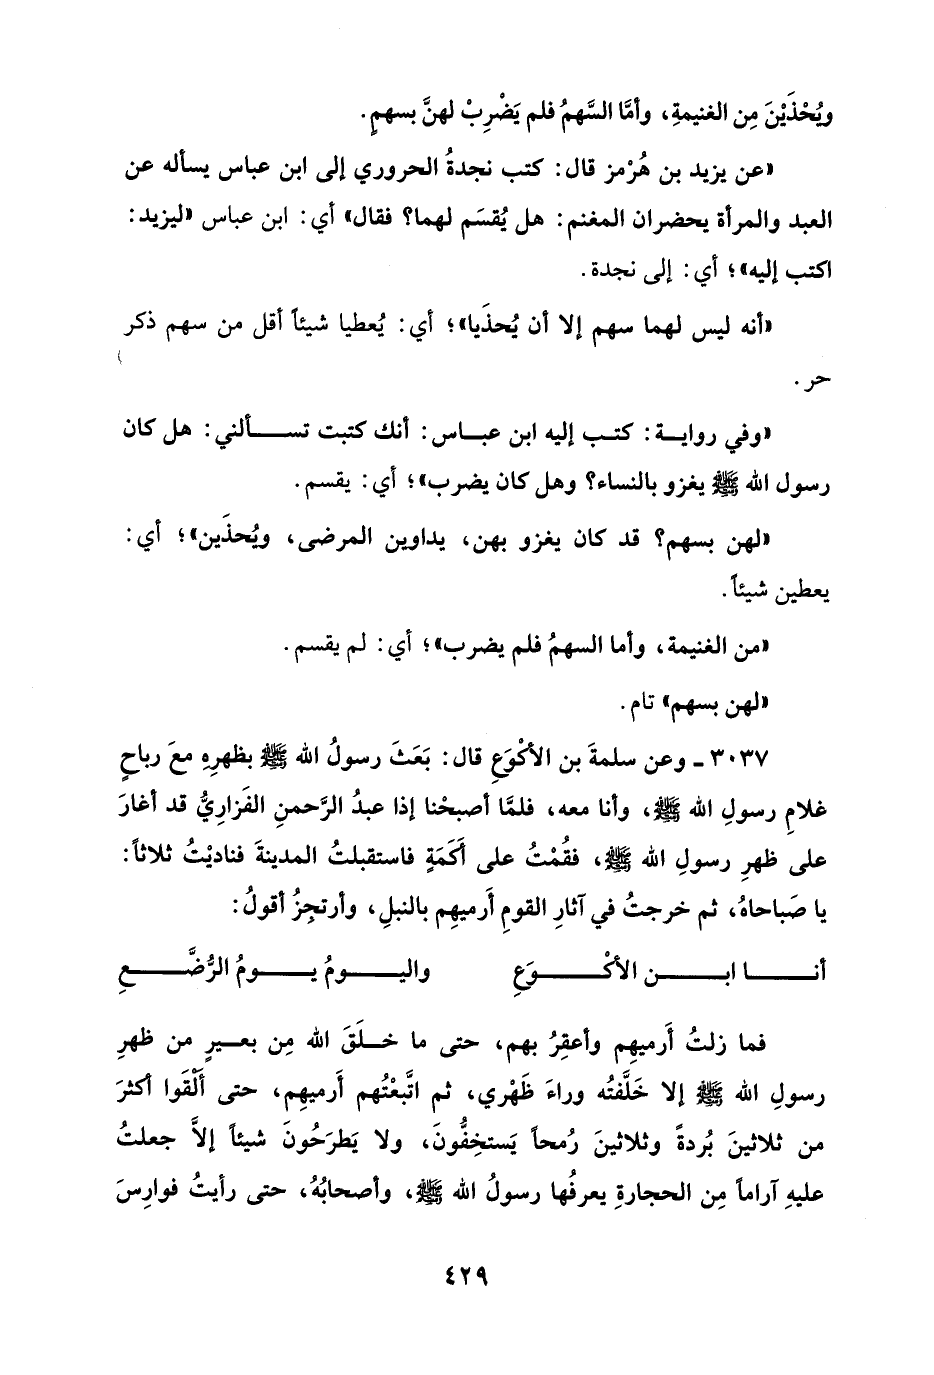 ويُحْذَيْنَ مِن الغنيمةِ، وأمَّا السَّهمُ فلم يَضْرِبْ لهنَّ بسهمٍ.
«عن يزيد بن هُرْمز قال: كتب نجدةُ الحروري إلى ابن عباس يسأله عن
العبد والمرأة يحضران المغنم: هل يُقسَم لهما؟ فقال» أي: ابن عباس «ليزيد:
اكتب إليه»؛ أي: إلى نجدة.
«أنه ليس لهما سهم إلا أن يُحذَيا»؛ أي: يُعطيا شيئاً أقل من سهم ذكر
حر.
«وفي رواية: كتب إليه ابن عباس: أنك كتبت تسألني: هل كان
رسول الله ﷺ يغزو بالنساء؟ وهل كان يضرب»؛ أي: يقسم.
«لهن بسهم؟ قد كان يغزو بهن، يداوين المرضى، ويُحذَين»؛ أي:
يعطين شيئاً.
«من الغنيمة، وأما السهمُ فلم يضرب»؛ أي: لم يقسم.
«لهن بسهم» تام.
٣٠٣٧ - وعن سلمةَ بن الأكْوَعِ قال: بَعَثَ رسولُ الله ﷺ بظهرِهِ معَ رباحٍ
غلامِ رسولِ الله ﷺ، وأنا معه، فلمَّا أصبحْنا إذا عبدُ الرَّحمنِ الفَزاريُّ قد أغارَ
على ظهرِ رسولِ الله ﷺ، فقُمْتُ على أَكَمَةٍ فاستقبلتُ المدينةَ فناديْتُ ثلاثاً:
يا صَباحاهُ، ثم خرجتُ في آثارِ القومِ أَرميهِم بالنبلِ، وأرتجِزُ أقولُ:
أنا ابن الأكْوَعِ واليومُ يومُ الرُّضَّعِ
فما زلتُ أَرميهِم وأعقِرُ بهم، حتى ما خلَقَ الله مِن بعيرٍ من ظهرِ
رسولِ الله ﷺ إلا خَلَّفتُه وراءَ ظَهْري، ثم اتَّبعْتُهم أَرميهِم، حتى أَلْقَوا أكثرَ
من ثلاثينَ بُردةً وثلاثينَ رُمحاً يَستخِفُّونَ، ولا يَطرَحُونَ شيئاً إلاَّ جعلتُ
عليهِ آراماً مِن الحجارةِ يعرفُها رسولُ الله ﷺ، وأصحابُهُ، حتى رأيتُ فوارِسَ
٤٢٩